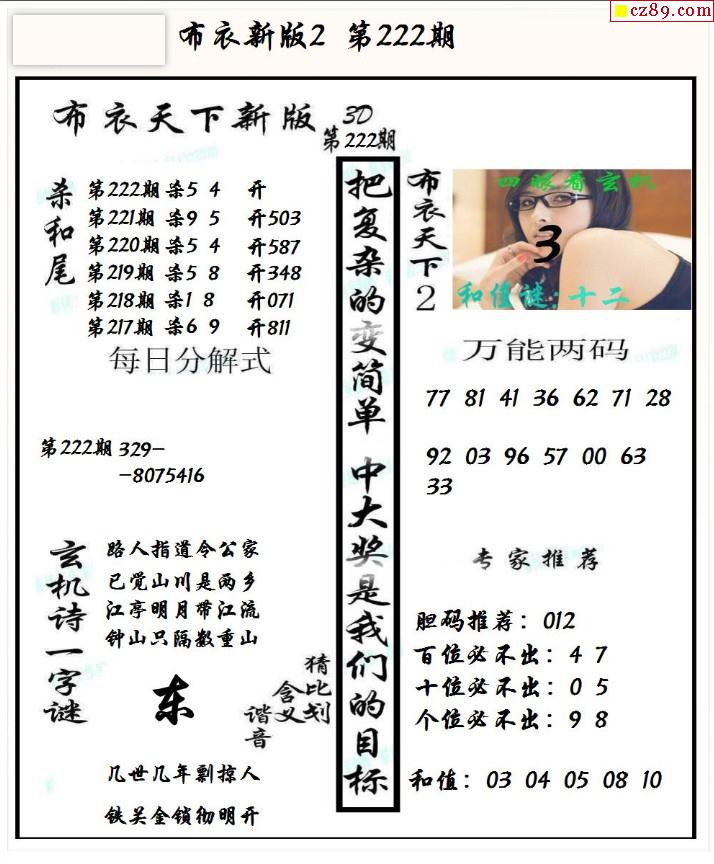 cz89.com
布衣新版2 第222期
布衣天下新版 3D
第222期
杀和尾
第222期 杀5 4 开
第221期 杀9 5 开503
第220期 杀5 4 开587
第219期 杀5 8 开348
第218期 杀1 8 开071
第217期 杀6 9 开811
每日分解式
第222期 329-
-8075416
玄机诗一字谜
路人指道令公家
已觉山川是两乡
江亭明月带江流
钟山只隔数重山
东
猜比划
含义
谐音
几世几年剽掠人
铁关金锁彻明开
把复杂的变简单 中大奖是我们的目标
布衣天下2
四眼看玄机
3
和值谜:十二
万能两码
77 81 41 36 62 71 28
92 03 96 57 00 63
33
专家推荐
胆码推荐: 012
百位必不出: 4 7
十位必不出: 0 5
个位必不出: 9 8
和值: 03 04 05 08 10